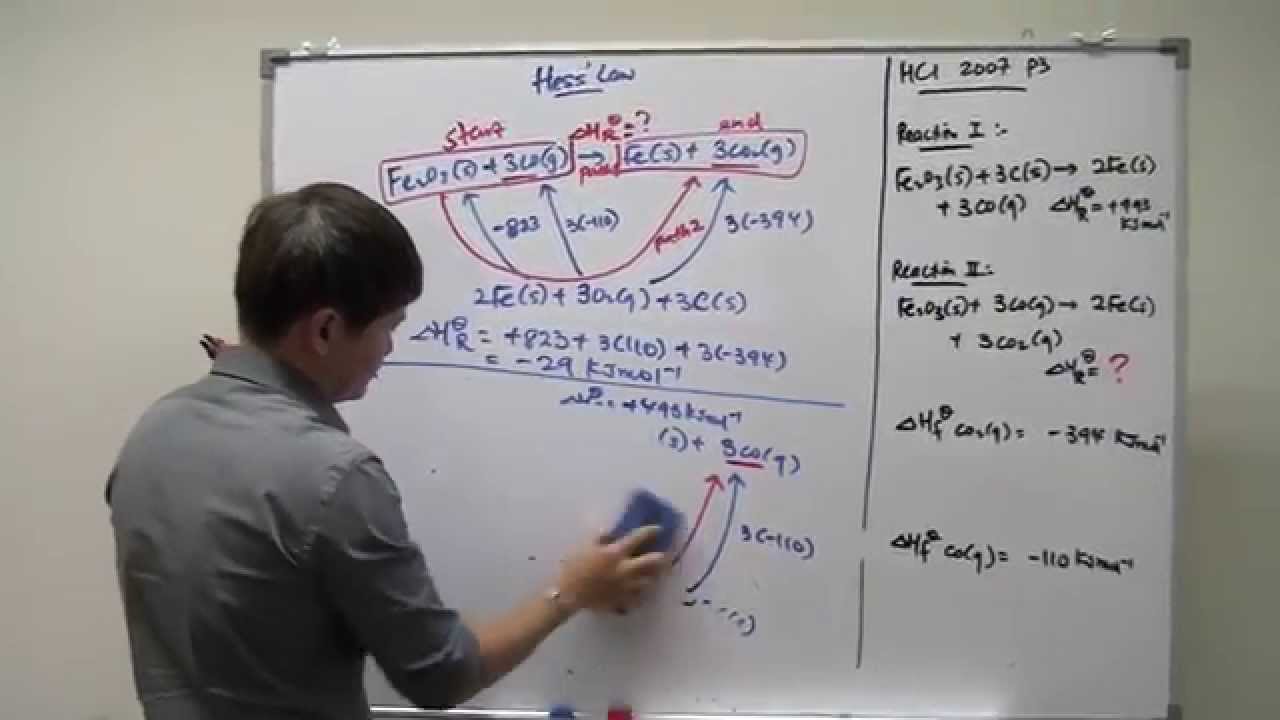 Hess' Law
start ΔH_R^⦵=? end
Fe₂O₃(s) + 3CO(g) → Fe(s) + 3CO₂(g)
-823 3(-110) path 2 3(-394)
2Fe(s) + 3O₂(g) + 3C(s)
ΔH_R^⦵ = +823 + 3(110) + 3(-394)
= -29 kJmol⁻¹
+493 kJmol⁻¹
(s) + 3CO(g)
3(-110)
HCI 2007 P3
Reaction I :-
Fe₂O₃(s) + 3C(s) → 2Fe(s)
+ 3CO(g) ΔH_R^⦵ = +493
kJmol⁻¹
Reaction II :-
Fe₂O₃(s) + 3CO(g) → 2Fe(s)
+ 3CO₂(g)
ΔH_R^⦵ = ?
ΔH_f^⦵ CO₂(g) = -394 kJmol⁻¹
ΔH_f^⦵ CO(g) = -110 kJmol⁻¹